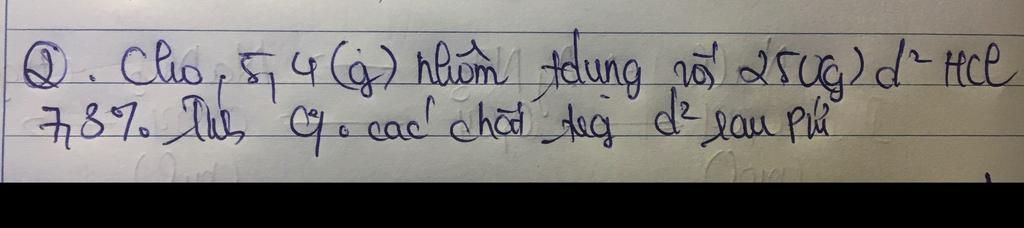 ②. Cho 5,4(g) nhôm tdụng với 250(g) d² HCl
7,3% Tính C% các chất trg d² sau pứ